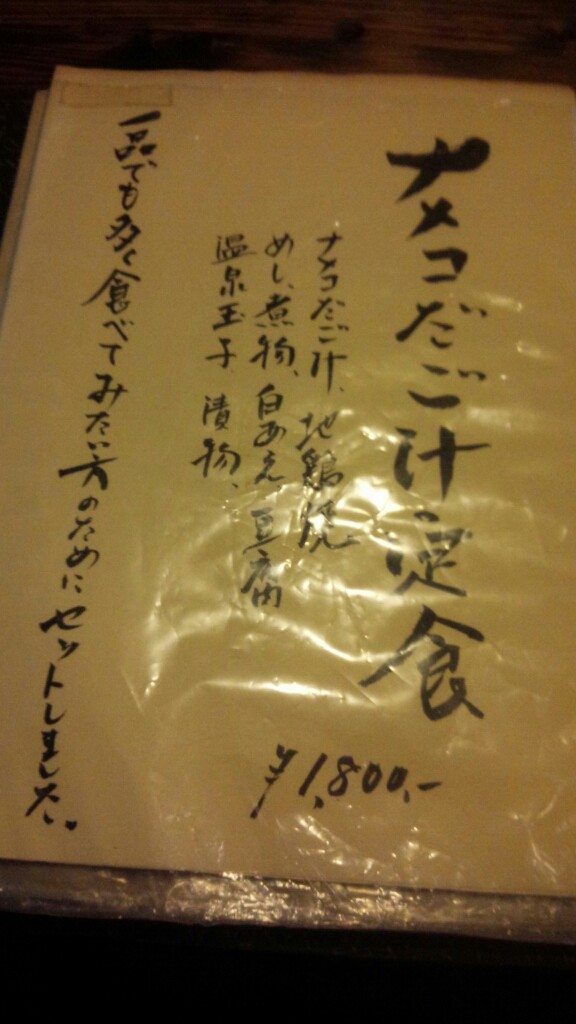 ナメコだご汁定食
ナメコだご汁、地鶏焼
めし、煮物、白あえ、豆腐
温泉玉子 漬物、
¥1,800.-
一品でも多く食べてみたい方のためにセットしました。